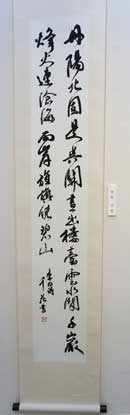 丹陽北固是吳關畫出樓臺雲水間千巖
烽火連滄海兩岸旌旗繞碧山
李白詩